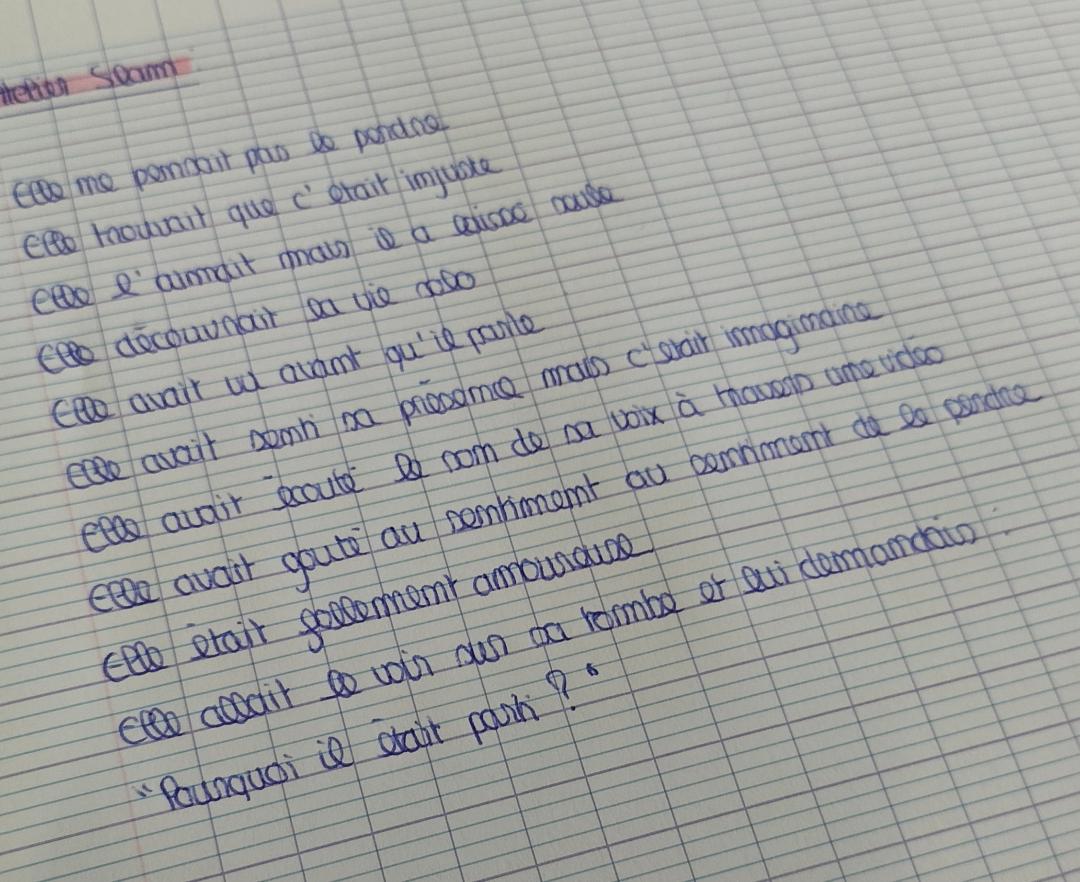 Slam
Elle ne pensait pas le perdre
Elle trouvait que c'était injuste
Elle l'aimait mais il a laissé seule
Elle découvrait sa vie solo
Elle avait vu avant qu'il parte
Elle avait senti sa présence mais c'était imaginaire
Elle avait écouté le son de sa voix à travers une vidéo
Elle avait gouté au sentiment au sentiment de le perdre
Elle était follement amoureuse
Elle allait le voir sur sa tombe et lui demandais :
"Pourquoi il était parti ?"